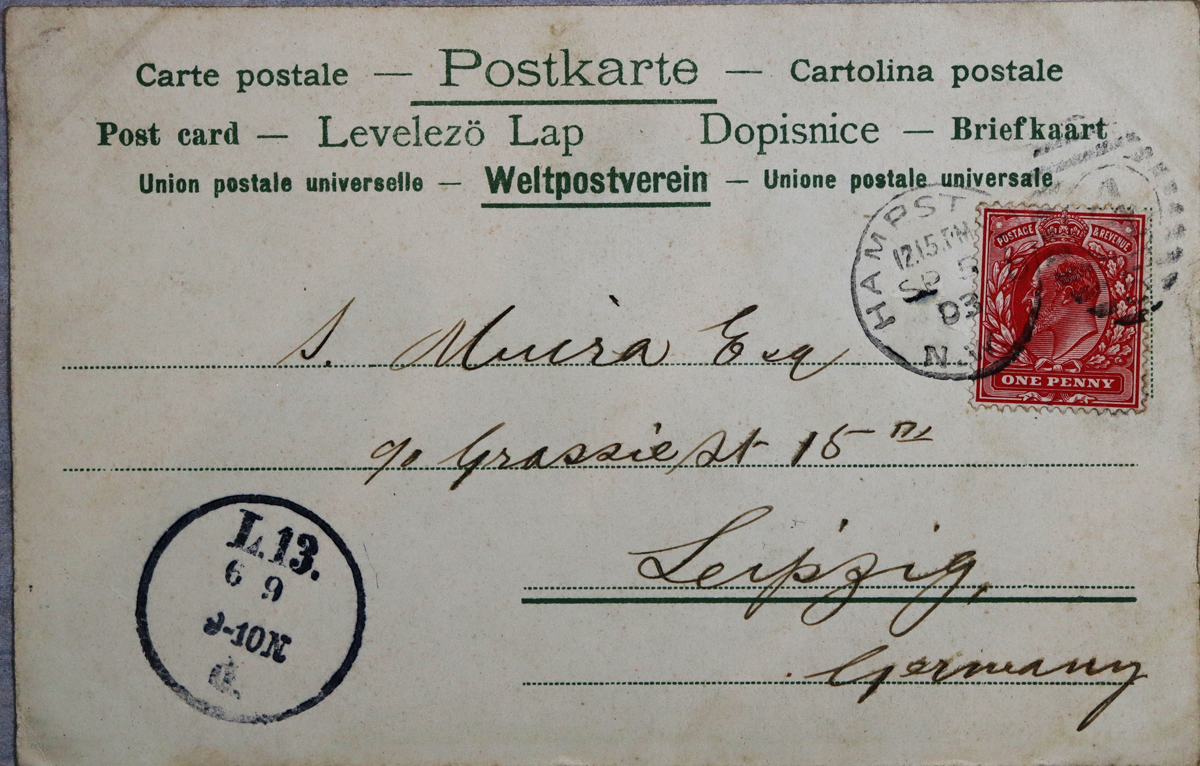 Carte postale — Postkarte — Cartolina postale
Post card — Levelezö Lap Dopisnice — Briefkaart
Union postale universelle — Weltpostverein — Unione postale universale
HAMPST
12.15.PM
SP 5
03
N.W
POSTAGE & REVENUE
ONE PENNY
S. Muira Esq
c/o Grassie st 15 III
Leipzig,
Germany
L.13.
6 9
9-10N
d.